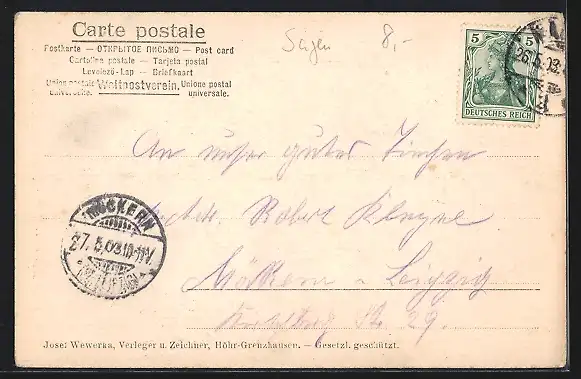 Carte postale
Postkarte — ОТКРЫТОЕ ПИСЬМО — Post card
Cartolina postale — Tarjeta postal
Levelező-Lap — Briefkaart
Union postale universelle. Weltpostverein. Unione postal universale.
8,-
5 5
DEUTSCHES REICH
26.5.03.
An unser gutes
Robert
Möckern Leipzig
Str. 29.
MÖCKERN
27.5.03.
Jose: Wewerka, Verleger u. Zeichner, Höhr-Grenzhausen. — Gesetzl. geschützt.